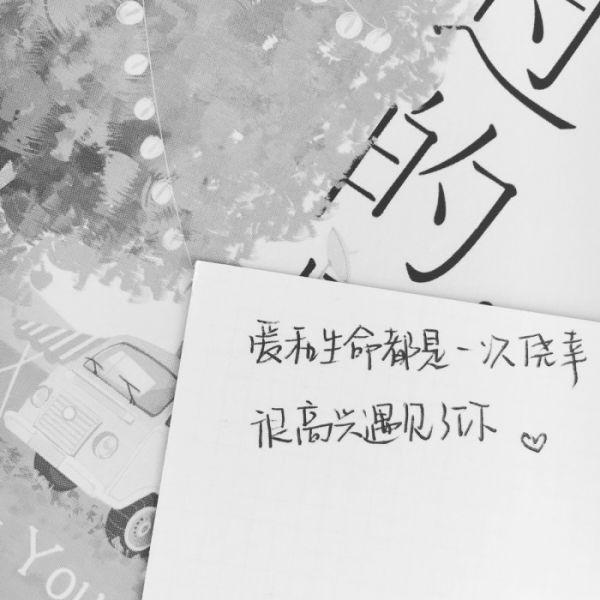 的
爱和生命都是一次侥幸
很高兴遇见了你
You